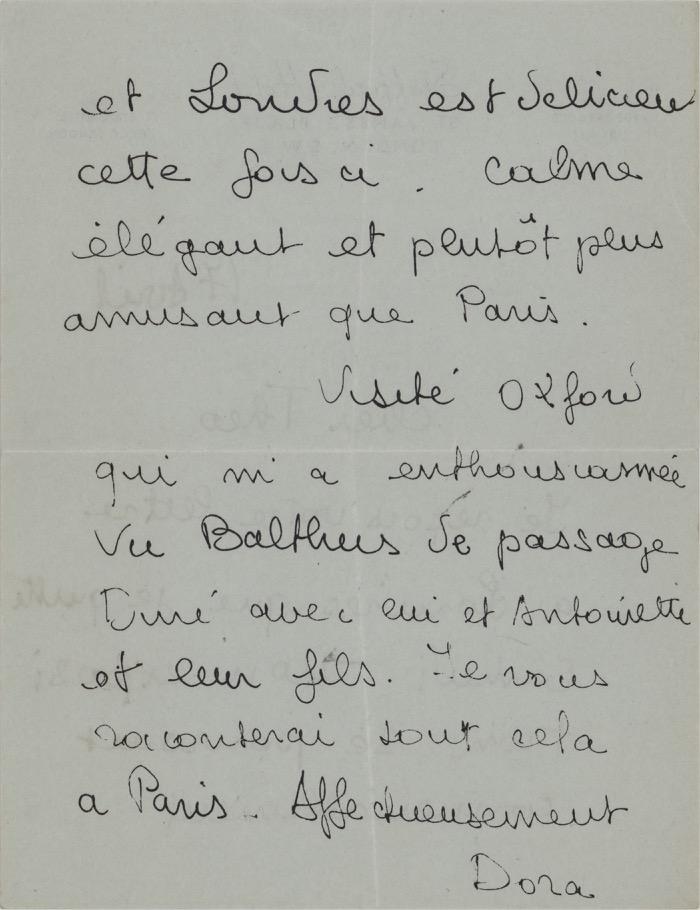 et Londres est delicieu
cette fois ci. Calme
élégant et plutôt plus
amusant que Paris.
Visité Oxford
qui m'a enthousiasmée
Vu Balthus de passage
Diné avec lui et Antoinette
et leur fils. Je vous
raconterai tout cela
a Paris. Affectueusement
Dora